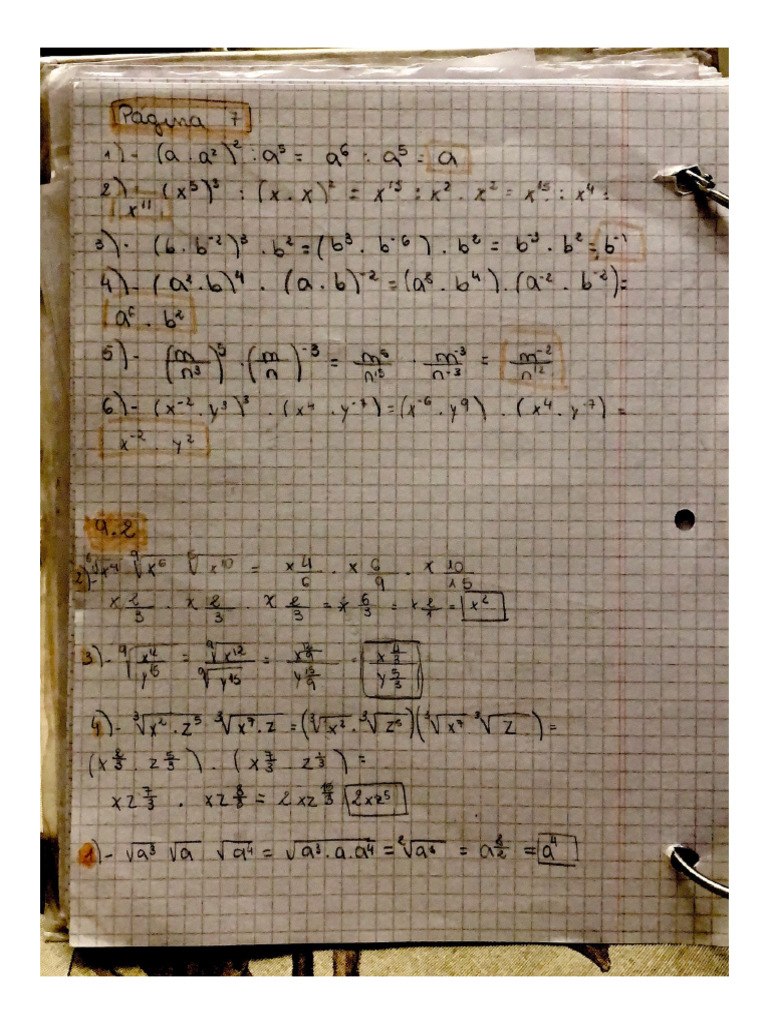 Página 7
1)- (a . a²)² : a⁵ = a⁶ : a⁵ = a
2)- (x⁵)³ : (x . x)² = x¹⁵ : x² . x² = x¹⁵ : x⁴ =
x¹¹
3)- (b . b⁻²)³ . b² = (b³ . b⁻⁶) . b² = b⁻³ . b² = b⁻¹
4)- (a² . b)⁴ . (a . b)⁻² = (a⁸ . b⁴) . (a⁻² . b⁻²) =
a⁶ . b²
5)- (m/n³)⁵ . (m/n)⁻³ = m⁵/n¹⁵ . m⁻³/n⁻³ = m⁻²/n¹²
6)- (x⁻² . y³)³ . (x⁴ . y⁻⁷) = (x⁻⁶ . y⁹) . (x⁴ . y⁻⁷) =
x⁻² . y²
9.2
2)- ⁶√x⁴ ⁹√x⁶ ¹⁵√x¹⁰ = x 4/6 . x 6/9 . x 10/15
x 2/3 . x 2/3 . x 2/3 = x 6/3 = x 2/1 = x²
3)- ⁹√x¹²/y¹⁵ = ⁹√x¹² / ⁹√y¹⁵ = x 12/9 / y 15/9 = x 4/3 / y 5/3
4)- ³√x² . z⁵ ³√x⁷ . z = (³√x² . ³√z⁵)(³√x⁷ ³√z) =
(x 2/3 . z 5/3) . (x 7/3 z 1/3) =
xz 7/3 . xz 8/3 = 2xz 15/3 2xz⁵
1)- √a³ √a √a⁴ = √a³ . a . a⁴ = ²√a⁸ = a 8/2 = a⁴